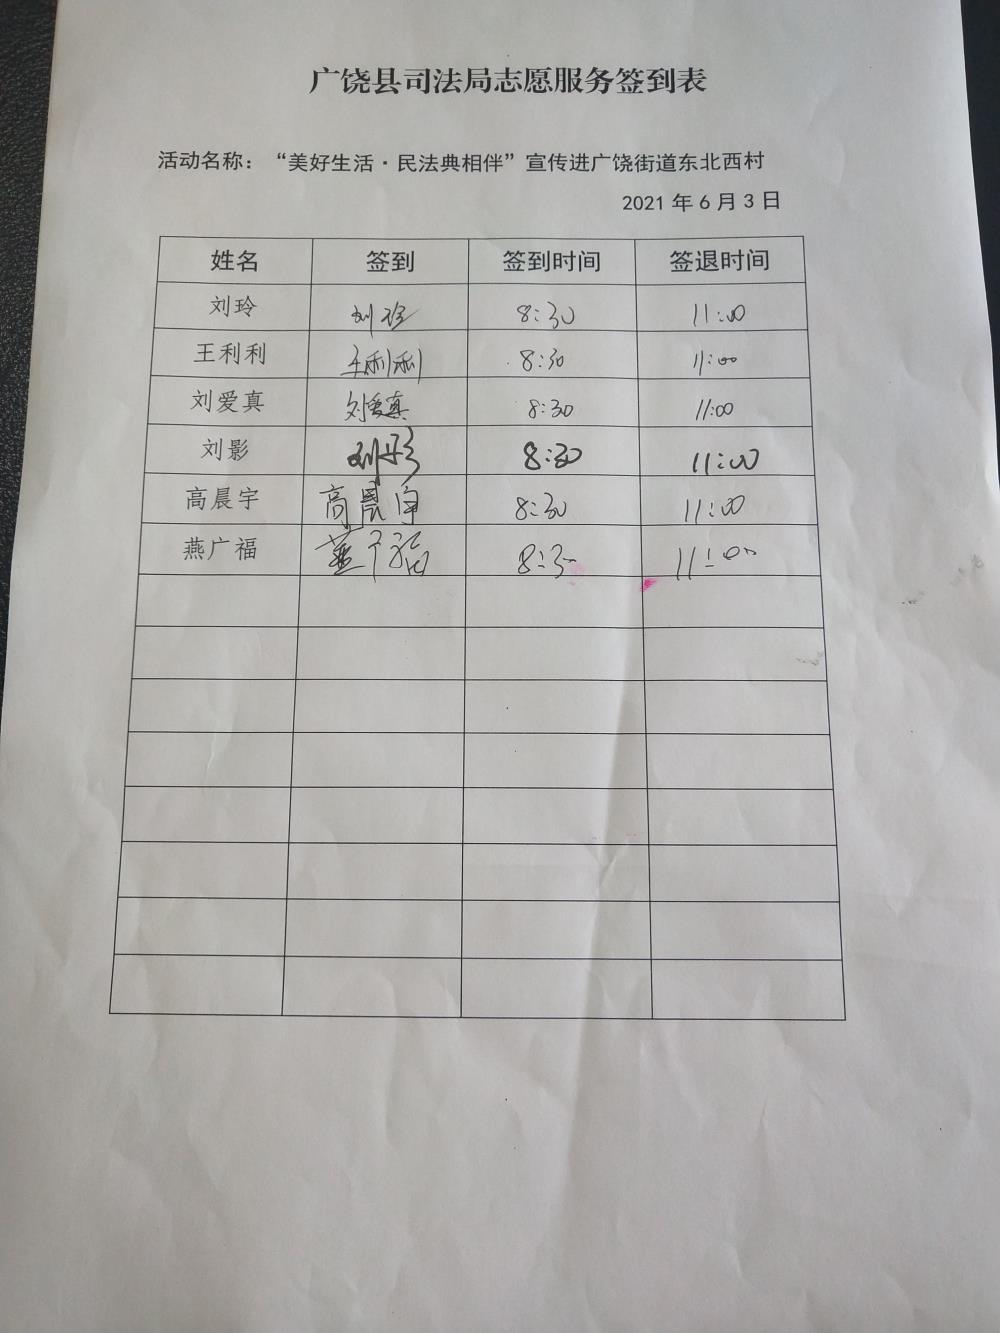 广饶县司法局志愿服务签到表
活动名称：“美好生活·民法典相伴”宣传进广饶街道东北西村
2021年6月3日
姓名 签到 签到时间 签退时间
刘玲 刘玲 8:30 11:00
王利利 王利利 8:30 11:00
刘爱真 刘爱真 8:30 11:00
刘影 刘影 8:30 11:00
高晨宇 高晨宇 8:30 11:00
燕广福 燕广福 8:30 11:00